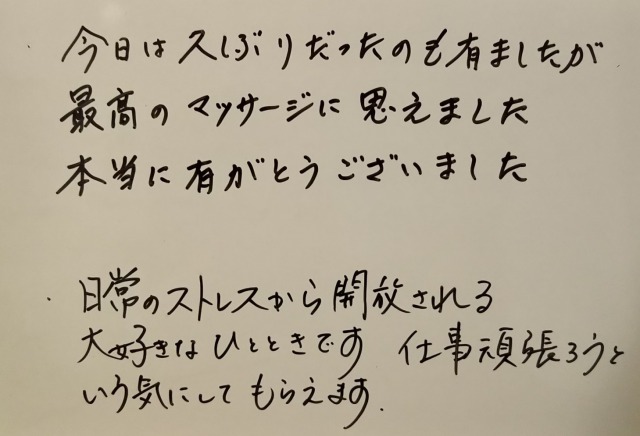 ・今日は久しぶりだったのも有ましたが
最高のマッサージに思えました
本当に有がとうございました
・日常のストレスから開放される
大好きなひとときです 仕事頑張ろうと
いう気にしてもらえます.